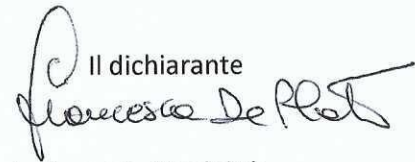 Il dichiarante
Francesca De